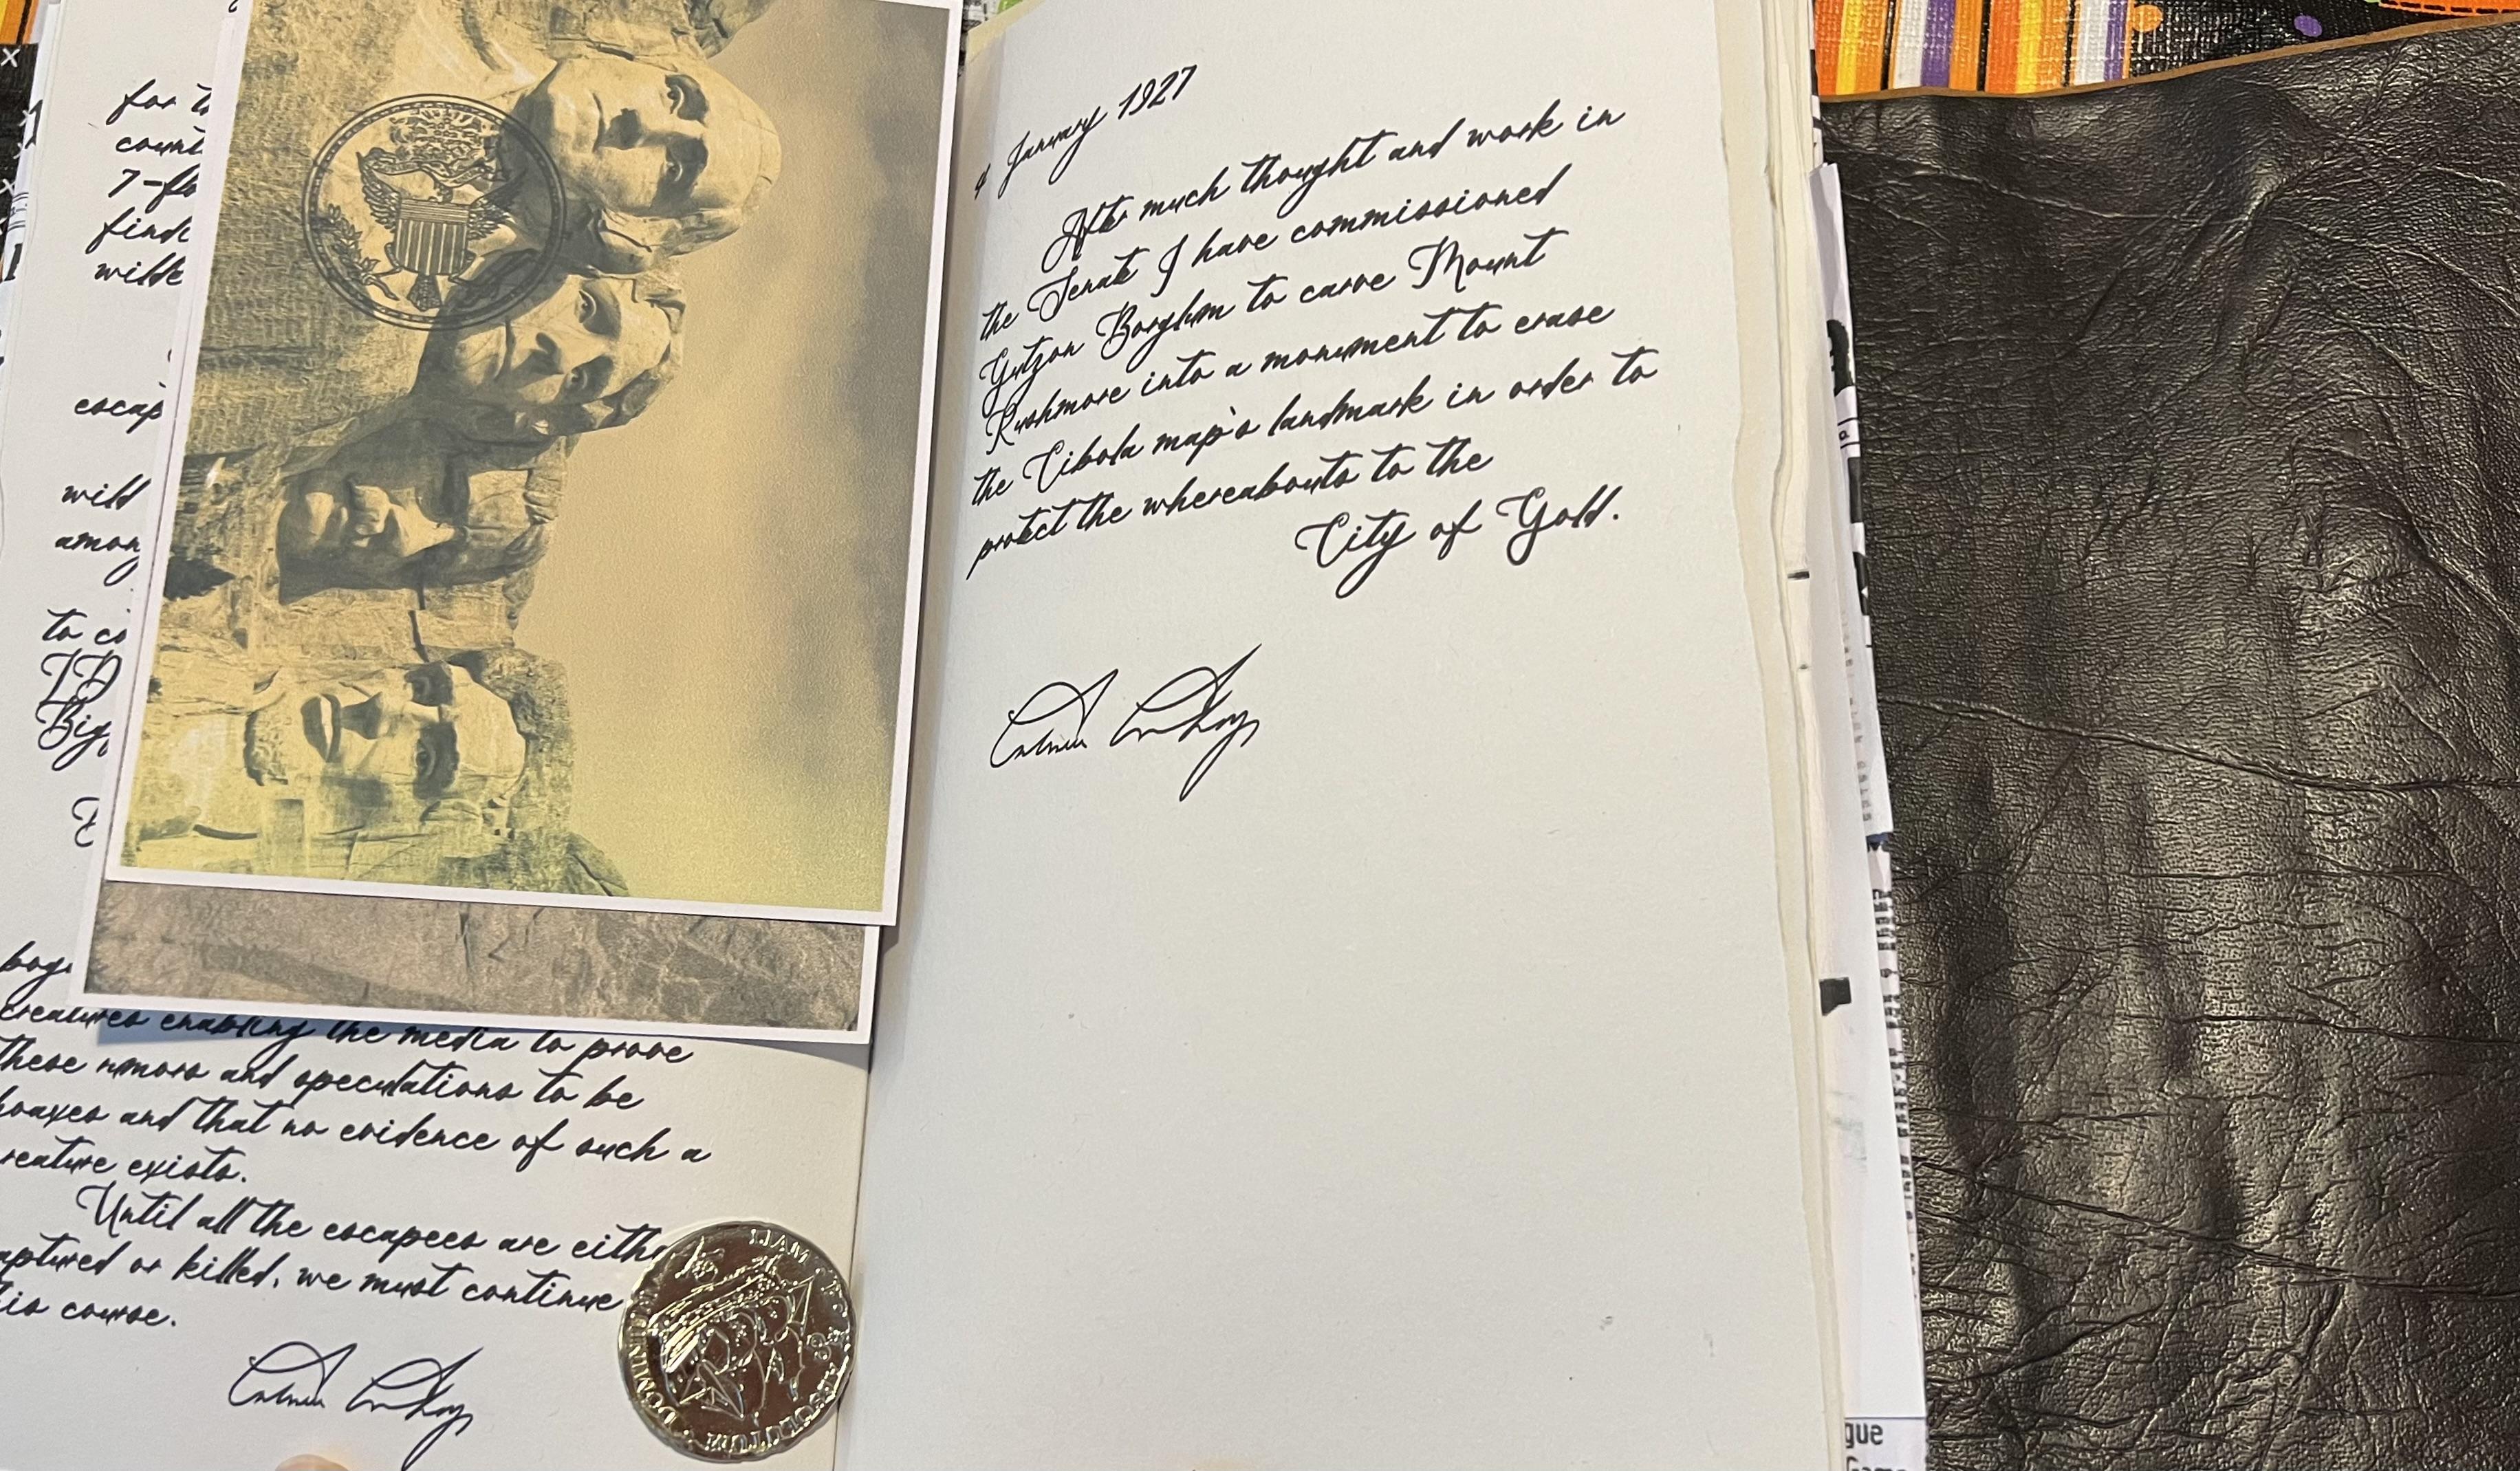 for t
count
7-
find
wilde
escap
wild
among
to co
Big
creatures enabling the media to prove
these rumors and speculations to be
hoaxes and that no evidence of such a
reature exists.
Until all the escapees are eithe
aptured or killed, we must continue
his course.
Calvin Coolidge
4 January 1927
After much thought and work in
the Senate I have commissioned
Gutzon Borglum to carve Mount
Rushmore into a monument to erase
the Cibola map's landmark in order to
protect the whereabouts to the
City of Gold.
Calvin Coolidge
gue